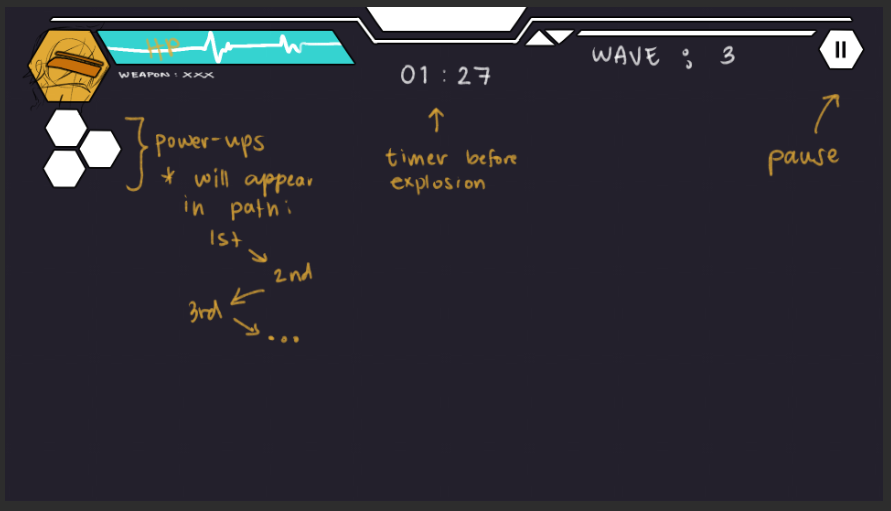 HP
WEAPON : XXX
01 : 27
WAVE : 3
power-ups
* will appear
in path:
1st
2nd
3rd
...
timer before
explosion
pause